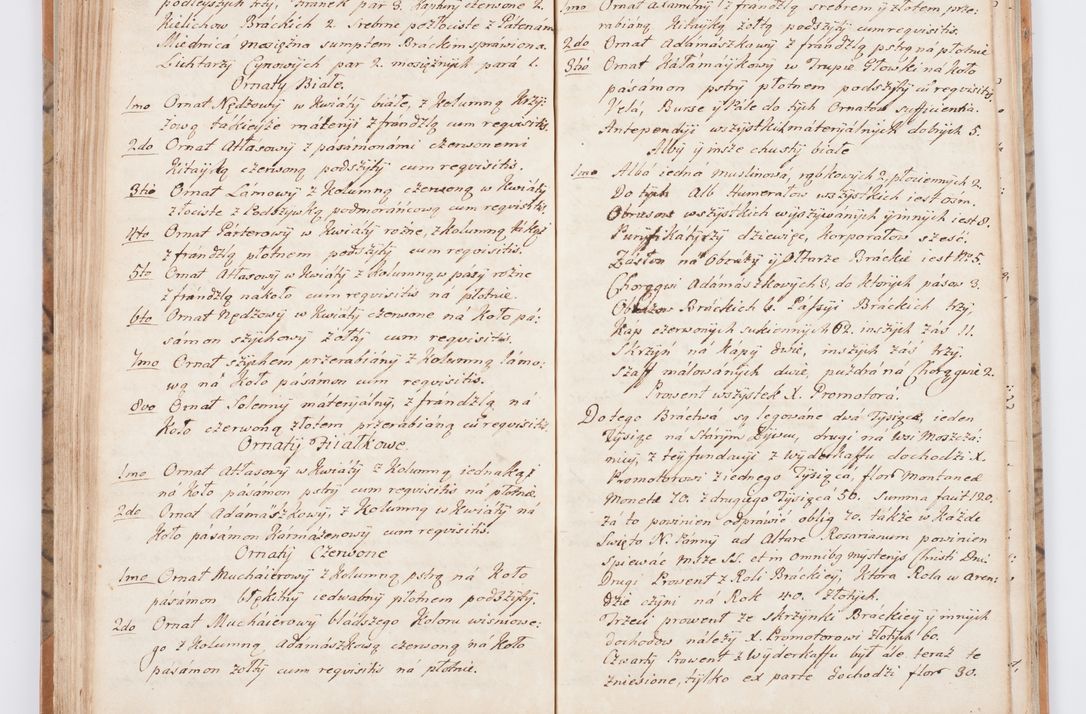 podleyszych trzy, Tranek par 3. Kapturý czerwone 2.
Kielichow Bráckich 2. Srebrne pozłociste z Patenám
Miednicá mosiężna sumptem Bráckim spráwiona
Lichtarzy Cynowých par 2. mosiężnych pará 1.
Ornatý Białe.
1mo Ornat Nędzowý w kwiátý białe, z Kolumną krzý-
żową tákieyże máteryi z frándzlą cum reqvisitis.
2do Ornat Atłasowý z pásamonámi czerwonemi
Kitayką czerwoną podszýtý cum reqvisitis.
3tio Ornat Lámowý z Kolumną czerwoną w kwiátý
złociste z Podszýwką podmoráńcową cum reqvisitis.
4to Ornat Párterowý w kwiatý rożne, z kolumną tákąż
z frándzlą płotnem podszýtý cum reqvisitis.
5to Ornat Atłasowý w Kwiátý z kolumną w pásý rożne
z frándzlą nákoło cum reqvisitis ná płotnie.
6to Ornat Nędzowý w Kwiatý czerwone ná koło pá-
sámon szychowý żołtý cum reqvisitis.
7mo Ornat szýchem przerabianý z Kolumną lámo-
wą ná koło pásámon cum reqvisitis.
8vo Ornat Solenný máteryálný, z frandzlą ná
koło czerwoną złotem przerabianą cum reqvisitis.
Ornatý Fiałkowe.
1mo Ornat Atłasowý w Kwiatý z Kolumną iednaką
ná koło pásamon pstrý cum reqvisitis ná płotnie.
2do Ornat Adámászkowý, z Kolumną w Kwiatý ná
koło pásamon Kármazenowý cum reqvisitis.
Ornatý Czerwone
1mo Ornat Muchaierowý z Kolumną pstrą ná koło
pasámon błękitný iedwabný płotnem podszýtý.
2do Ornat Muchaierowý bládszego Koloru wisniowe-
go z Kolumną adámászkową czerwoną ná koło
pásámon żołtý cum reqvisitis ná płotnie.
1mo Ornat z frándzlą srebrem ý złotem prze-
rabianą Kitayką żołtą podszýtý cum reqvisitis.
2do Ornat Adámaszkowý z frándzlą pstrą ná płotnie
3tio Ornat Káłámáýkowý w Trupie Głowki ná koło
pasámon pstrý płotnem podszýtý cum reqvisitis
Velá, Bursse ý Pále do tých Ornatow sufficientia.
Antependýi wszýstkich máteryálných dobrých 5.
Alby ý insze chustý białe
1mo Albá iedna muslinowa, rąbkowých 2 płociennych 2.
Do tých Alb Humerałow wszýstkich iest osm.
Obrusow wszýstkich wýszýwáných ý innych iest 8.
Purýfikátyrzý dziewięc, Korporałow szesć.
Zasłon ná Obrazý ý Ołtarze Bráckie iest Nro 5.
Chorągwi Adamászkowých 8. do ktorých pásow 3.
Obrazow Bráckich 6. Passyi Bráckich trzý.
Kap czerwoných sukienných 62. inszych zás 11.
Skrzyń ná kapý dwie, inszych záś trzý.
Száff málowáných dwie, puzdra ná Chorągwie 2.
Prowent wszýstek X. Promotorá.
Do tego Bractwá są legowáne dwá Týsiące, ieden
Tysiąc ná Stárým Zýwcu, drugi ná wsi Moszczá-
nicý, z tey fundacýi z wyderkaffu dochodzi X.
Promotorowi z iednego Týsiącá, flor Montanea
Moneta 70. z drugiego Týsiącá 50. Summa facit 120.
Zá to powinien odpráwić oblig 70. tákże w Każde
Swięto N. Pánný ad Altare Rosarianum powinien
spiewać Msze SS. et in Omnibg mysterijs Christi Dni.
Drugi Prowent z Roli Bráckiey, ktora Rola w Aren-
dzie czýni ná Rok 40. złotých.
Trzeci prowent ze skrzýnki Bráckiey ý innych
dochodow náleży X. Promotorowi złotých 60.
Czwarty Prowent z Wýderkaffu był ale teraz te
zniesione, týlko ex parte dochodzi flor 30.